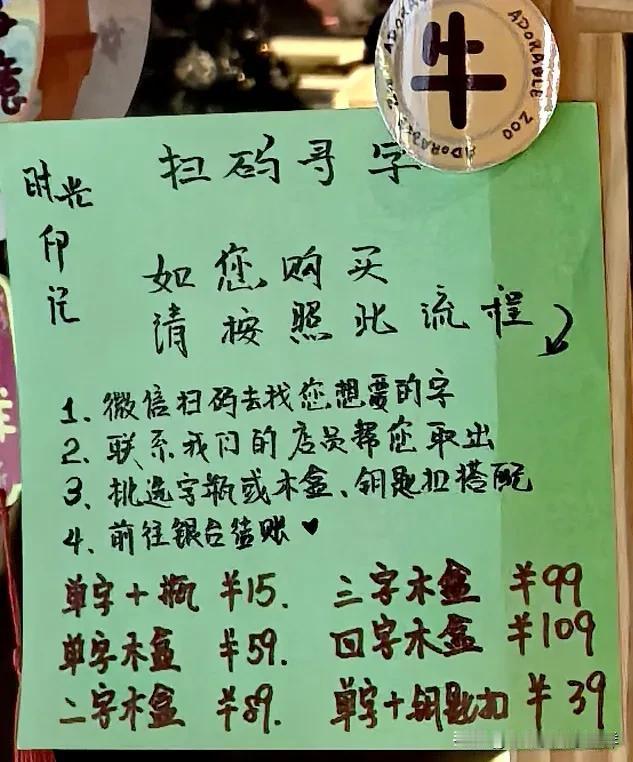 牛
ADORABLE ZOO
扫码寻字
时光印记
如您购买
请按照此流程
1、微信扫码去找您想要的字
2、联系我们的店员帮您取出
3、挑选字瓶或木盒、钥匙扣搭配
4、前往银台结账♥
单字+瓶 ¥15.
三字木盒 ¥99
单字木盒 ¥59.
四字木盒 ¥109
二字木盒 ¥89.
单字+钥匙扣 ¥39